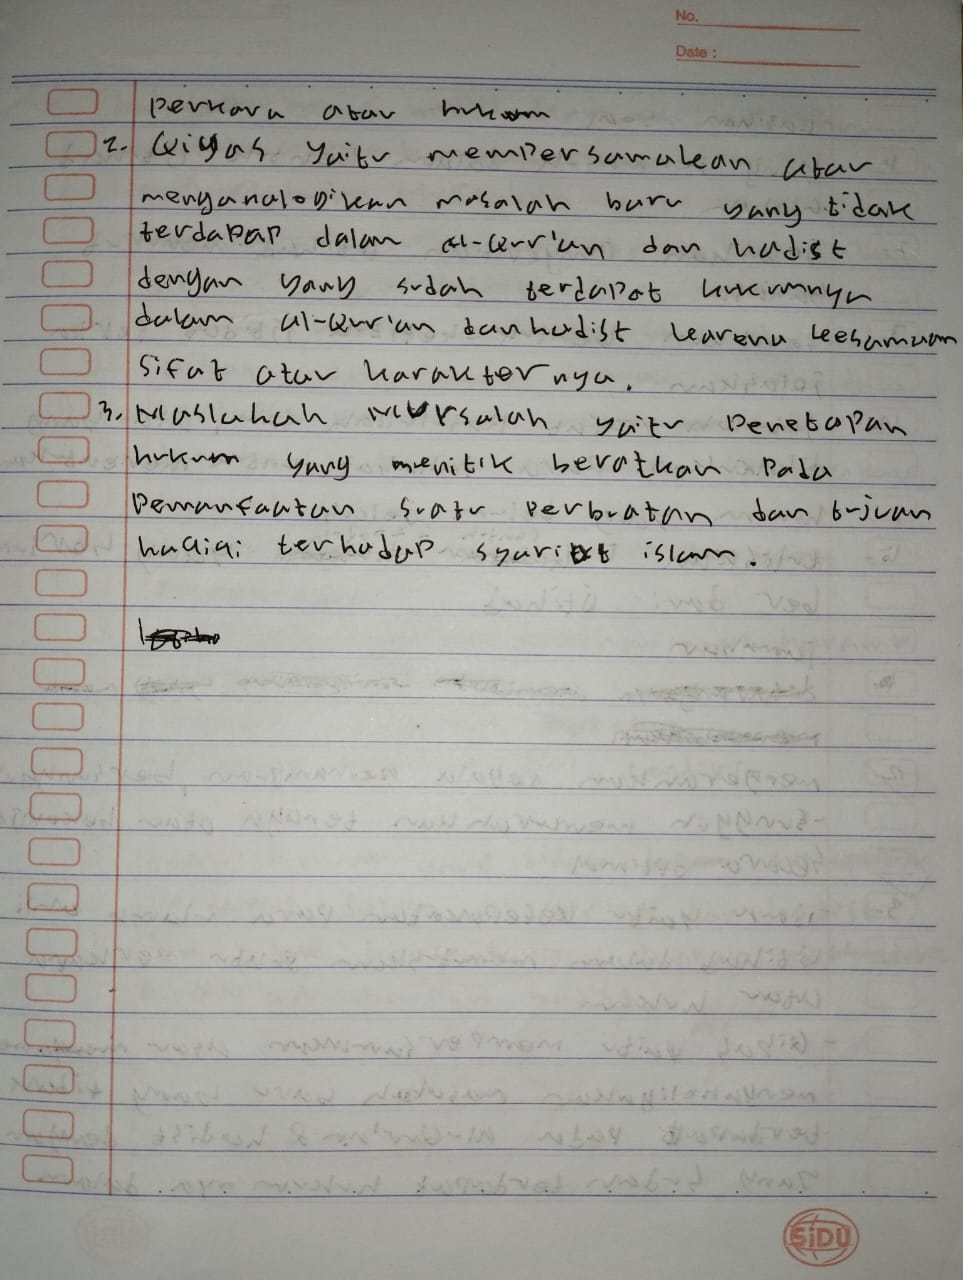 No.
Date :
perkara atau hukum
2. Qiyas yaitu mempersamakan atau
menyanalogikan masalah baru yang tidak
terdapap dalam al-Qur'an dan hadist
dengan yang sudah terdapat hukumnya
dalam al-Qur'an dan hadist karena kesamaan
sifat atau karakternya.
3. Maslahah Mursalah yaitu Penetapan
hukum yang menitik beratkan pada
pemanfaatan suatu perbuatan dan tujuan
haqiqi terhadap syariat islam.
SiDU